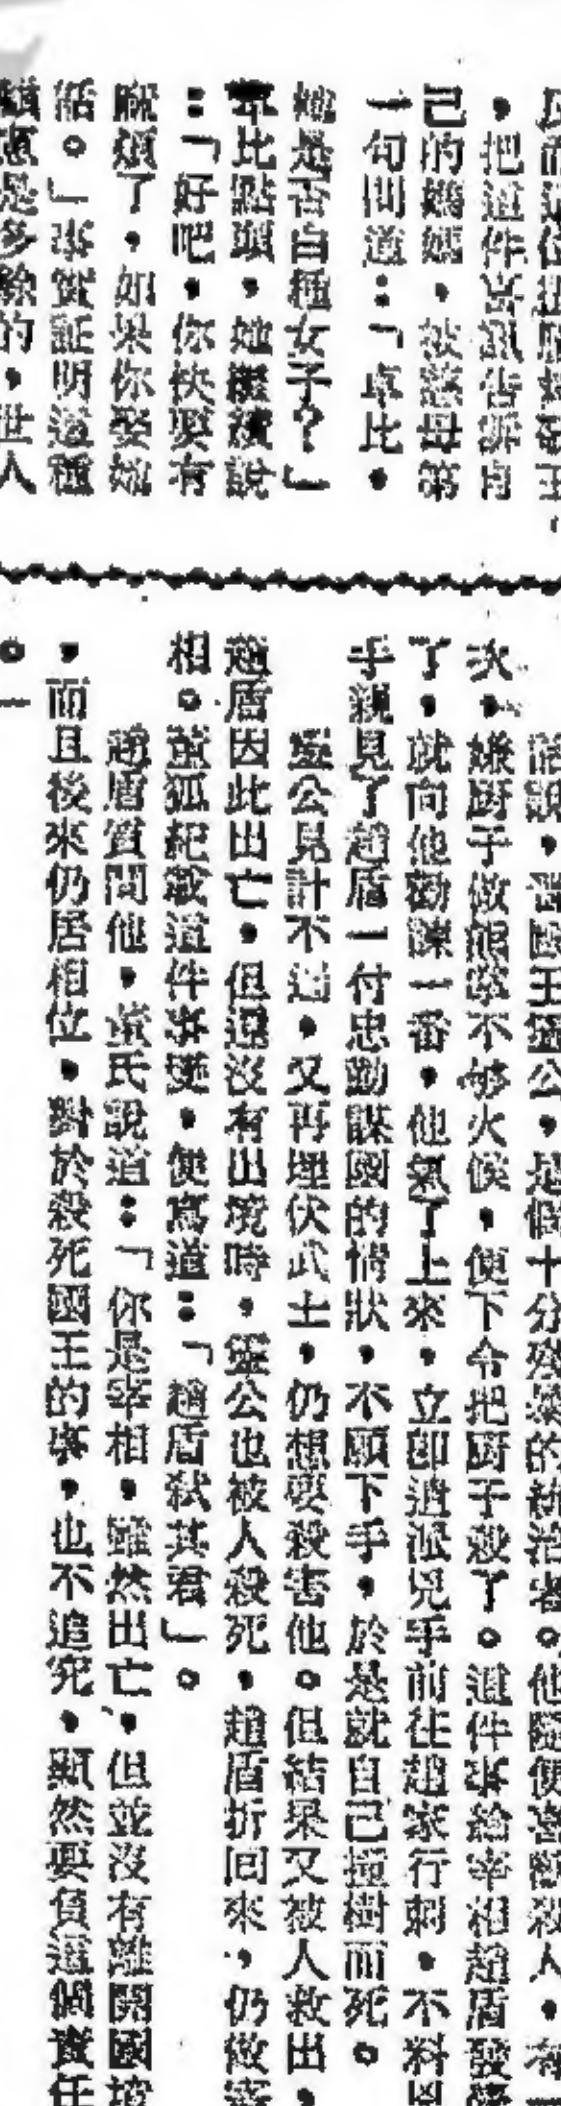 ，把這件喜訊告訴自
己的媽媽，被慈母第
一句問道：「卓比，
她是否白種女子？」
卓比點頭，她繼續說
：「好吧，你快娶有
麻煩了，如果你娶她
話。」事實証明這種
顧慮是多餘的，世人
話說，晋國王靈公，是個十分殘暴的統治者。他隨便喜歡殺人，有一
次，嫌厨子做熊掌不够火候，便下令把厨子殺了。這件事給宰相趙盾發覺
了，就向他勸諫一番，他氣了上來，立即遣派兇手前往趙家行刺，不料兇
手親見了趙盾一付忠勤謀國的情狀，不願下手，於是就自己撞樹而死。
靈公見計不逞，又再埋伏武士，仍想要殺害他。但結果又被人救出，
趙盾因此出亡，但還沒有出境時，靈公也被人殺死，趙盾折回來，仍做宰
相。董狐紀載這件事變，便寫道：「趙盾弒其君」。
趙盾質問他，董氏說道：「你是宰相，雖然出亡，但並沒有離開國境
，而且後來仍居相位，對於殺死國王的事，也不追究，顯然要負這個責任
。」